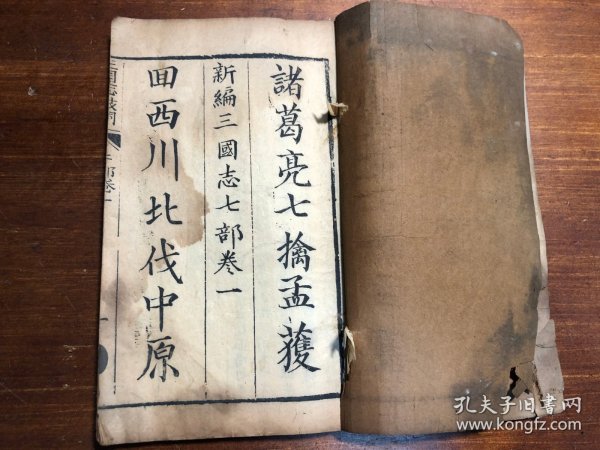 諸葛亮七擒孟獲
新編三國志七部卷一
回西川北伐中原
孔夫子旧书网
www.kongfz.com